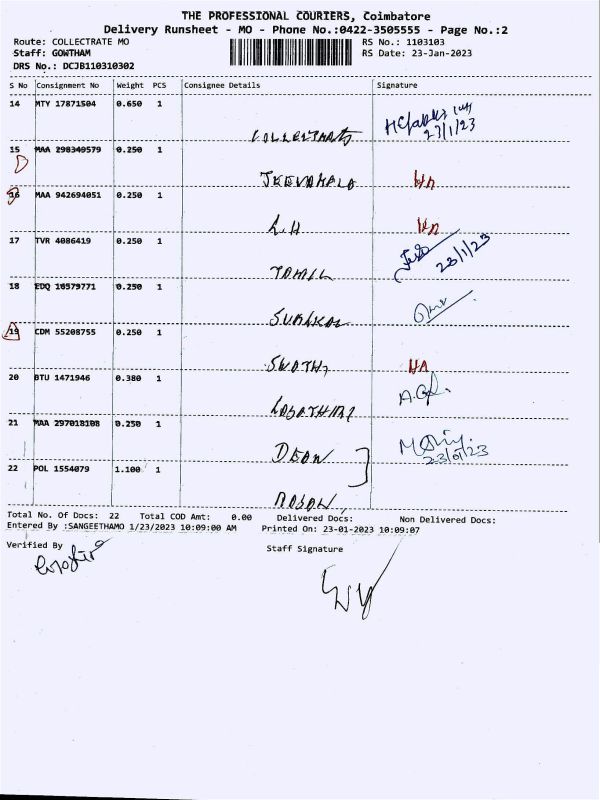 THE PROFESSIONAL COURIERS, Coimbatore
Delivery Runsheet - MO - Phone No.:0422-3505555 - Page No.:2
Route: COLLECTRATE MO RS No.: 1103103
Staff: GOWTHAM RS Date: 23-Jan-2023
DRS No.: DCJB110310302
S No Consignment No Weight PCS Consignee Details Signature
14 MTY 17871504 0.650 1
23/1/23
15 MAA 298349579 0.250 1
NA
16 MAA 942694051 0.250 1
L.H NA
17 TVR 4086419 0.250 1
23/1/23
TAMIL
18 EDQ 16579771 0.250 1
19 CDM 55208755 0.250 1
SWATHI NA
20 BTU 1471946 0.380 1
21 MAA 297018108 0.250 1
DEAN 23/01/23
22 POL 1554079 1.100 1
Total No. Of Docs: 22 Total COD Amt: 0.00 Delivered Docs: Non Delivered Docs:
Entered By :SANGEETHAMO 1/23/2023 10:09:00 AM Printed On: 23-01-2023 10:09:07
Verified By Staff Signature